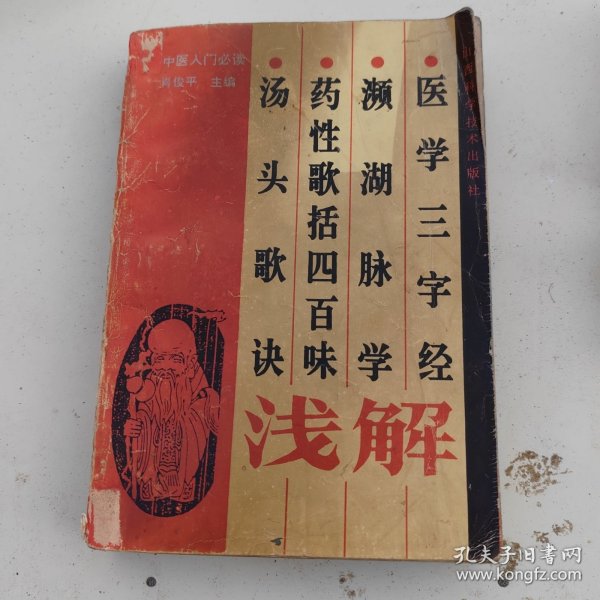 中医入门必读
肖俊平 主编
医学三字经
濒湖脉学
药性歌括四百味
汤头歌诀
浅解
山西科学技术出版社
孔夫子旧书网
www.kongfz.com